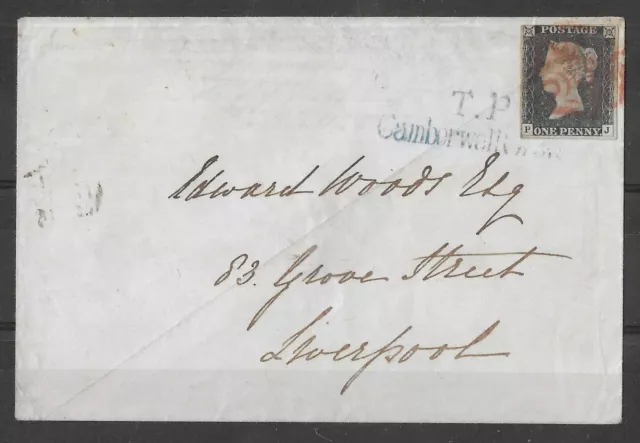 POSTAGE
P ONE PENNY J
T.P
Camberwell
Edward Woods Esq
83. Grove Street
Liverpool